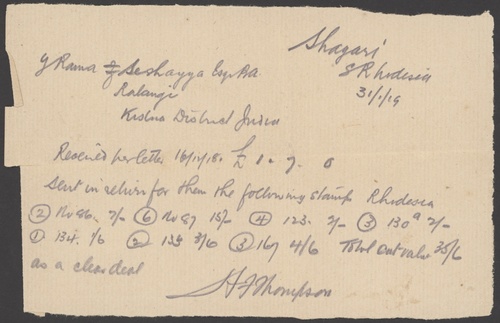 Shagari
S Rhodesia
31/1/19
Y Rama Seshayya Esqr BA
Ratangi
Kistna District India
Received per letter 16/11/18. £ 1. 7. 0
Sent in return for them the following stamps Rhodesia
② No 86. 2/- ⑥ No 87 15/- ④ 123. 2/- ③ 130a 2/-
① 134. 1/6 ② 135 3/6 ③ 167 4/6 Total Cat value 35/6
as a clear deal
H J Thompson